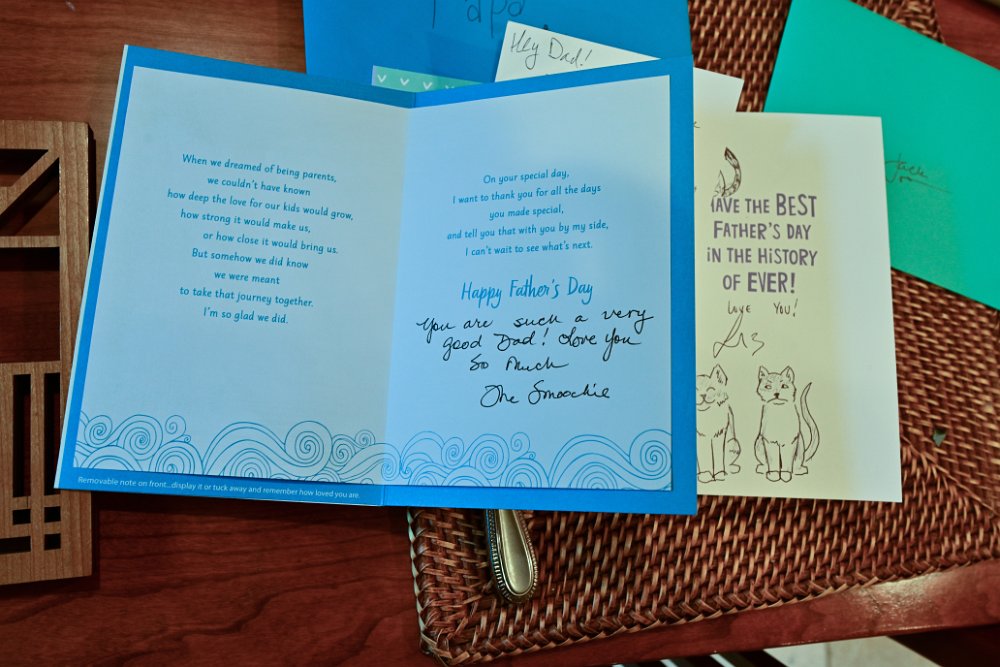 Papa
Hey Dad!
When we dreamed of being parents,
we couldn't have known
how deep the love for our kids would grow,
how strong it would make us,
or how close it would bring us.
But somehow we did know
we were meant
to take that journey together.
I'm so glad we did.
Removable note on front...display it or tuck away and remember how loved you are.
On your special day,
I want to thank you for all the days
you made special,
and tell you that with you by my side,
I can't wait to see what's next.
Happy Father's Day
You are such a very
good Dad! Love You
So Much
The Smoochie
HAVE THE BEST
FATHER'S DAY
IN THE HISTORY
OF EVER!
LOVE YOU!
Liz
Jack